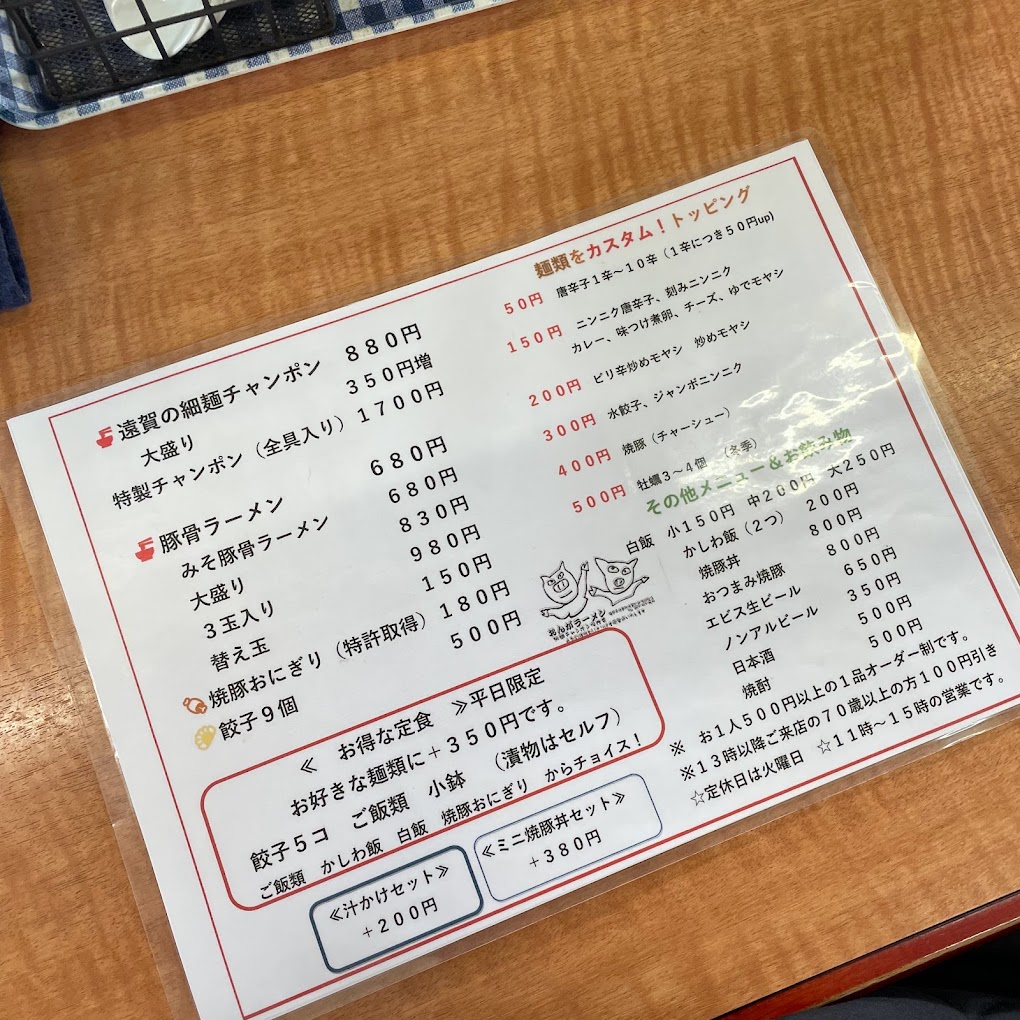 遠賀の細麺チャンポン 880円
大盛り 350円増
特製チャンポン(全具入り) 1700円
豚骨ラーメン 680円
みそ豚骨ラーメン 680円
大盛り 830円
3玉入り 980円
替え玉 150円
焼豚おにぎり(特許取得) 180円
餃子9個 500円
≪ お得な定食 ≫平日限定
お好きな麺類に+350円です。
餃子5コ ご飯類 小鉢 (漬物はセルフ)
ご飯類 かしわ飯 白飯 焼豚おにぎり からチョイス!
≪汁かけセット≫
+200円
≪ミニ焼豚丼セット≫
+380円
麺類をカスタム!トッピング
50円 唐辛子1辛~10辛(1辛につき50円up)
150円 ニンニク唐辛子、刻みニンニク
カレー、味つけ煮卵、チーズ、ゆでモヤシ
200円 ピリ辛炒めモヤシ 炒めモヤシ
300円 水餃子、ジャンボニンニク
400円 焼豚(チャーシュー)
500円 牡蠣3~4個 (冬季)
その他メニュー&お飲み物
白飯 小150円 中200円 大250円
かしわ飯(2つ) 200円
焼豚丼 800円
おつまみ焼豚 800円
エビス生ビール 650円
ノンアルビール 350円
日本酒 500円
焼酎 500円
おんがラーメン
※ お1人500円以上の1品オーダー制です。
※13時以降ご来店の70歳以上の方100円引き
☆定休日は火曜日 ☆11時~15時の営業です。